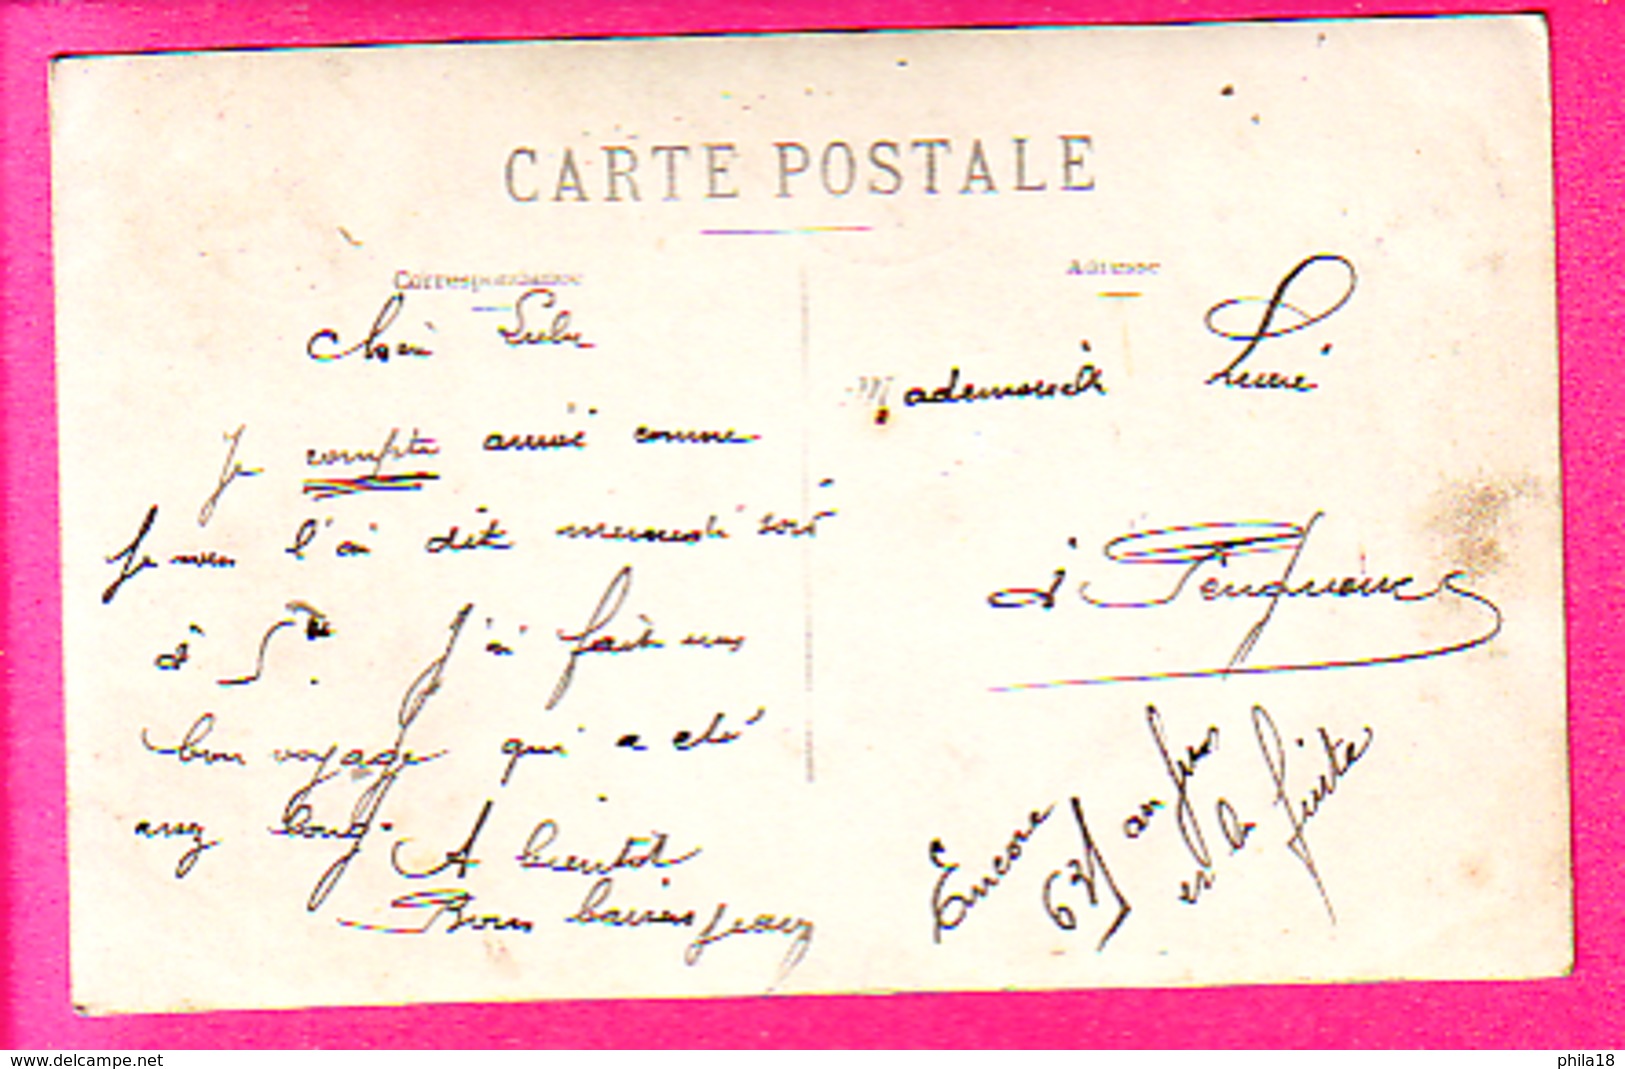 CARTE POSTALE
Correspondance
Adresse
Cher Lulu
Je compte arrivé comme
Je vous l'ai dit mercredi soir
à
J'ai fait un
bon voyage qui a été
assez long. A bientôt
Bons baisers Jean
Mademoiselle
à
Encore
63 au jus
et la fuite
www.delcampe.net
phila18